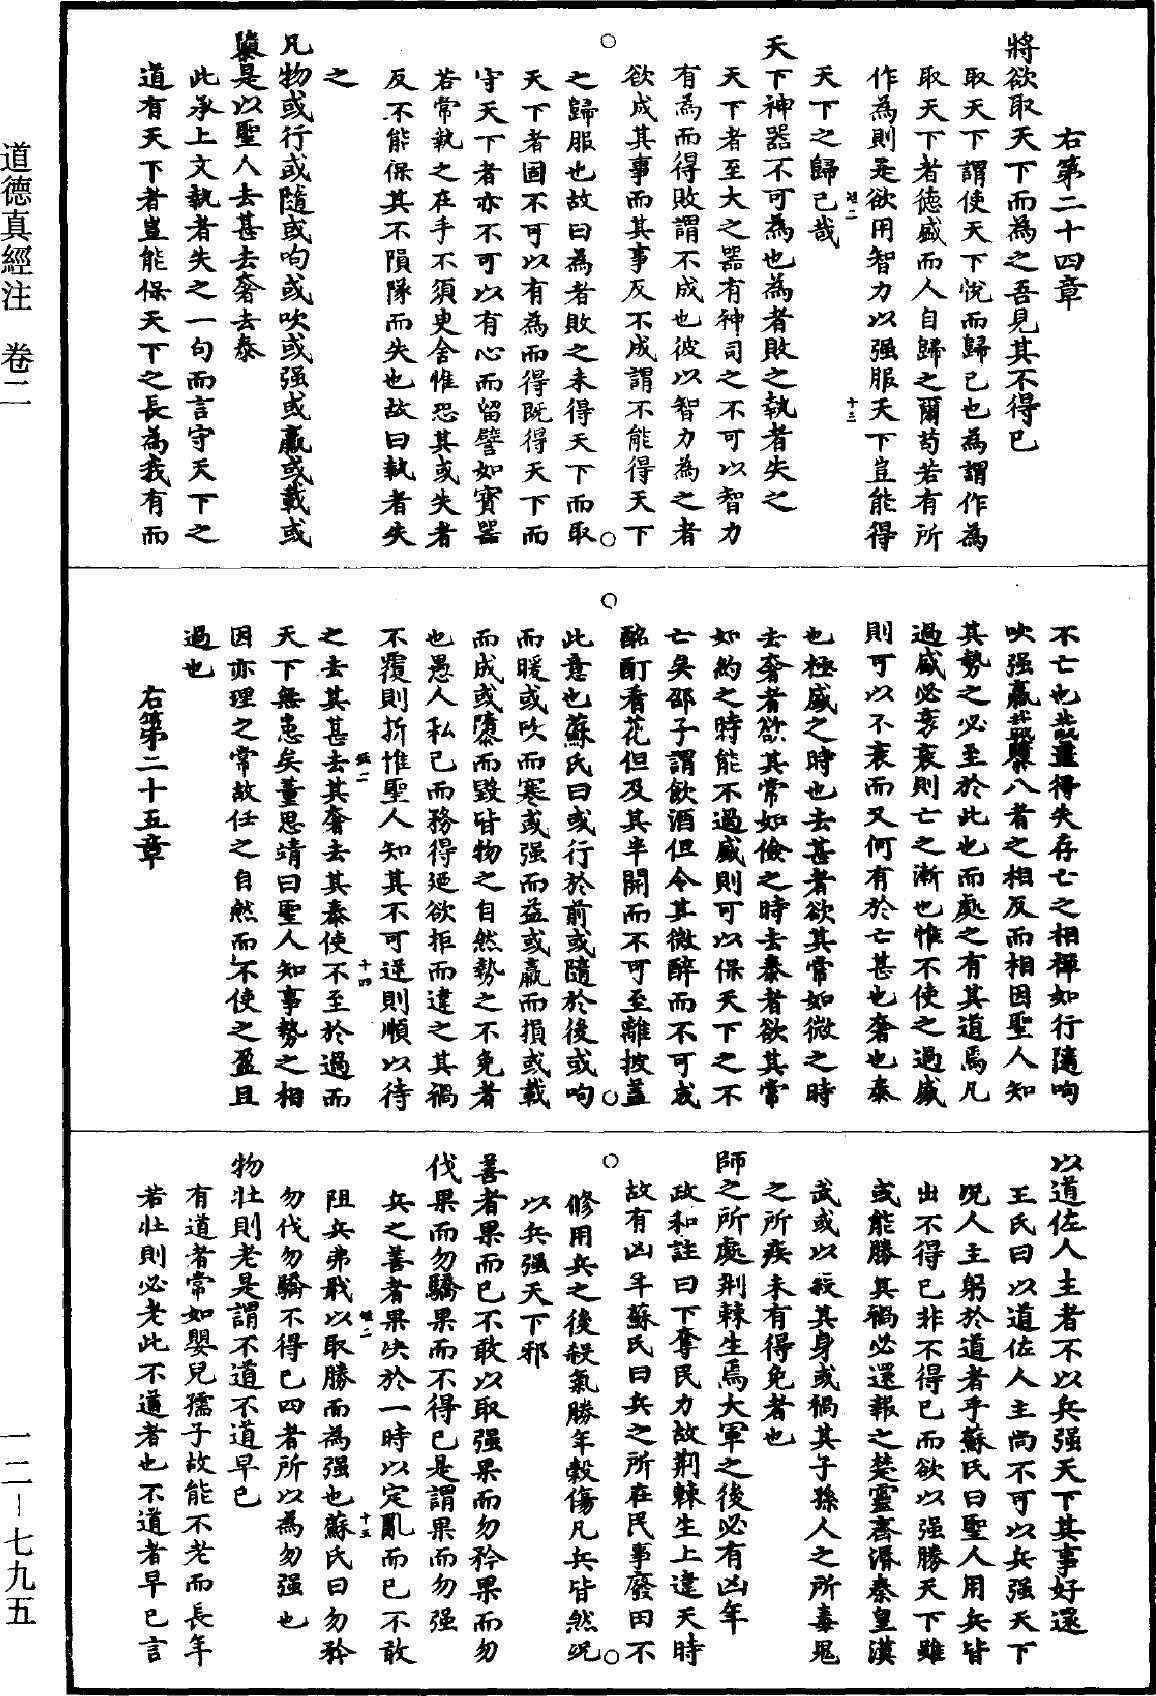 右第二十四章
將欲取天下而為之吾見其不得已
取天下謂使天下悅而歸己也為謂作為
取天下者德盛而人自歸之爾苟若有所
作為則是欲用智力以强服天下豈能得
天下之歸己哉
天下神器不可為也為者敗之執者失之
天下者至大之器有神司之不可以智力
有為而得敗謂不成也彼以智力為之者
欲成其事而其事反不成謂不能得天下
之歸服也故曰為者敗之未得天下而取
天下者固不可以有為而得既得天下而
守天下者亦不可以有心而留譬如寶器
若常執之在手不須臾舍惟恐其或失者
反不能保其不隕墜而失也故曰執者失
之
凡物或行或隨或呴或吹或强或羸或載或
隳是以聖人去甚去奢去泰
此承上文執者失之一句而言守天下之
道有天下者豈能保天下之長為我有而
不亡也盖得失存亡之相禪如行隨呴
吹强羸載隳八者之相反而相因聖人知
其勢之必至於此也而處之有其道焉凡
過盛必衰衰則亡之漸也惟不使之過盛
則可以不衰而又何有於亡甚也奢也泰
也極盛之時也去甚者欲其常如微之時
去奢者欲其常如儉之時去泰者欲其常
如約之時能不過盛則可以保天下之不
亡矣邵子謂飲酒但令其微醉而不可成
酩酊看花但及其半開而不可至離披盖
此意也蘇氏曰或行於前或隨於後或呴
而暖或吹而寒或强而益或羸而損或載
而成或隳而毀皆物之自然勢之不免者
也愚人私己而務得廼欲拒而違之其禍
不覆則折惟聖人知其不可逆則順以待
之去其甚去其奢去其泰使不至於過而
天下無患矣董思靖曰聖人知事勢之相
因亦理之常故任之自然而不使之盈且
過也
右第二十五章
以道佐人主者不以兵强天下其事好還
王氏曰以道佐人主尚不可以兵强天下
況人主躬於道者乎蘇氏曰聖人用兵皆
出不得已非不得已而欲以强勝天下雖
或能勝其禍必還報之楚靈齊湣秦皇漢
武或以殺其身或禍其子孫人之所毒鬼
之所疾未有得免者也
師之所處荆棘生焉大軍之後必有凶年
政和註曰下奪民力故荆棘生上違天時
故有凶年蘇氏曰兵之所在民事廢田不
修用兵之後殺氣勝年穀傷凡兵皆然況
以兵强天下邪
善者果而已不敢以取强果而勿矜果而勿
伐果而勿驕果而不得已是謂果而勿强
兵之善者果決於一時以定亂而已不敢
阻兵弗戢以取勝而為强也蘇氏曰勿矜
勿伐勿驕不得已四者所以為勿强也
物壯則老是謂不道不道早已
有道者常如嬰兒孺子故能不老而長年
若壯則必老此不道者也不道者早已言
道德真經注 卷二
一二－七九五